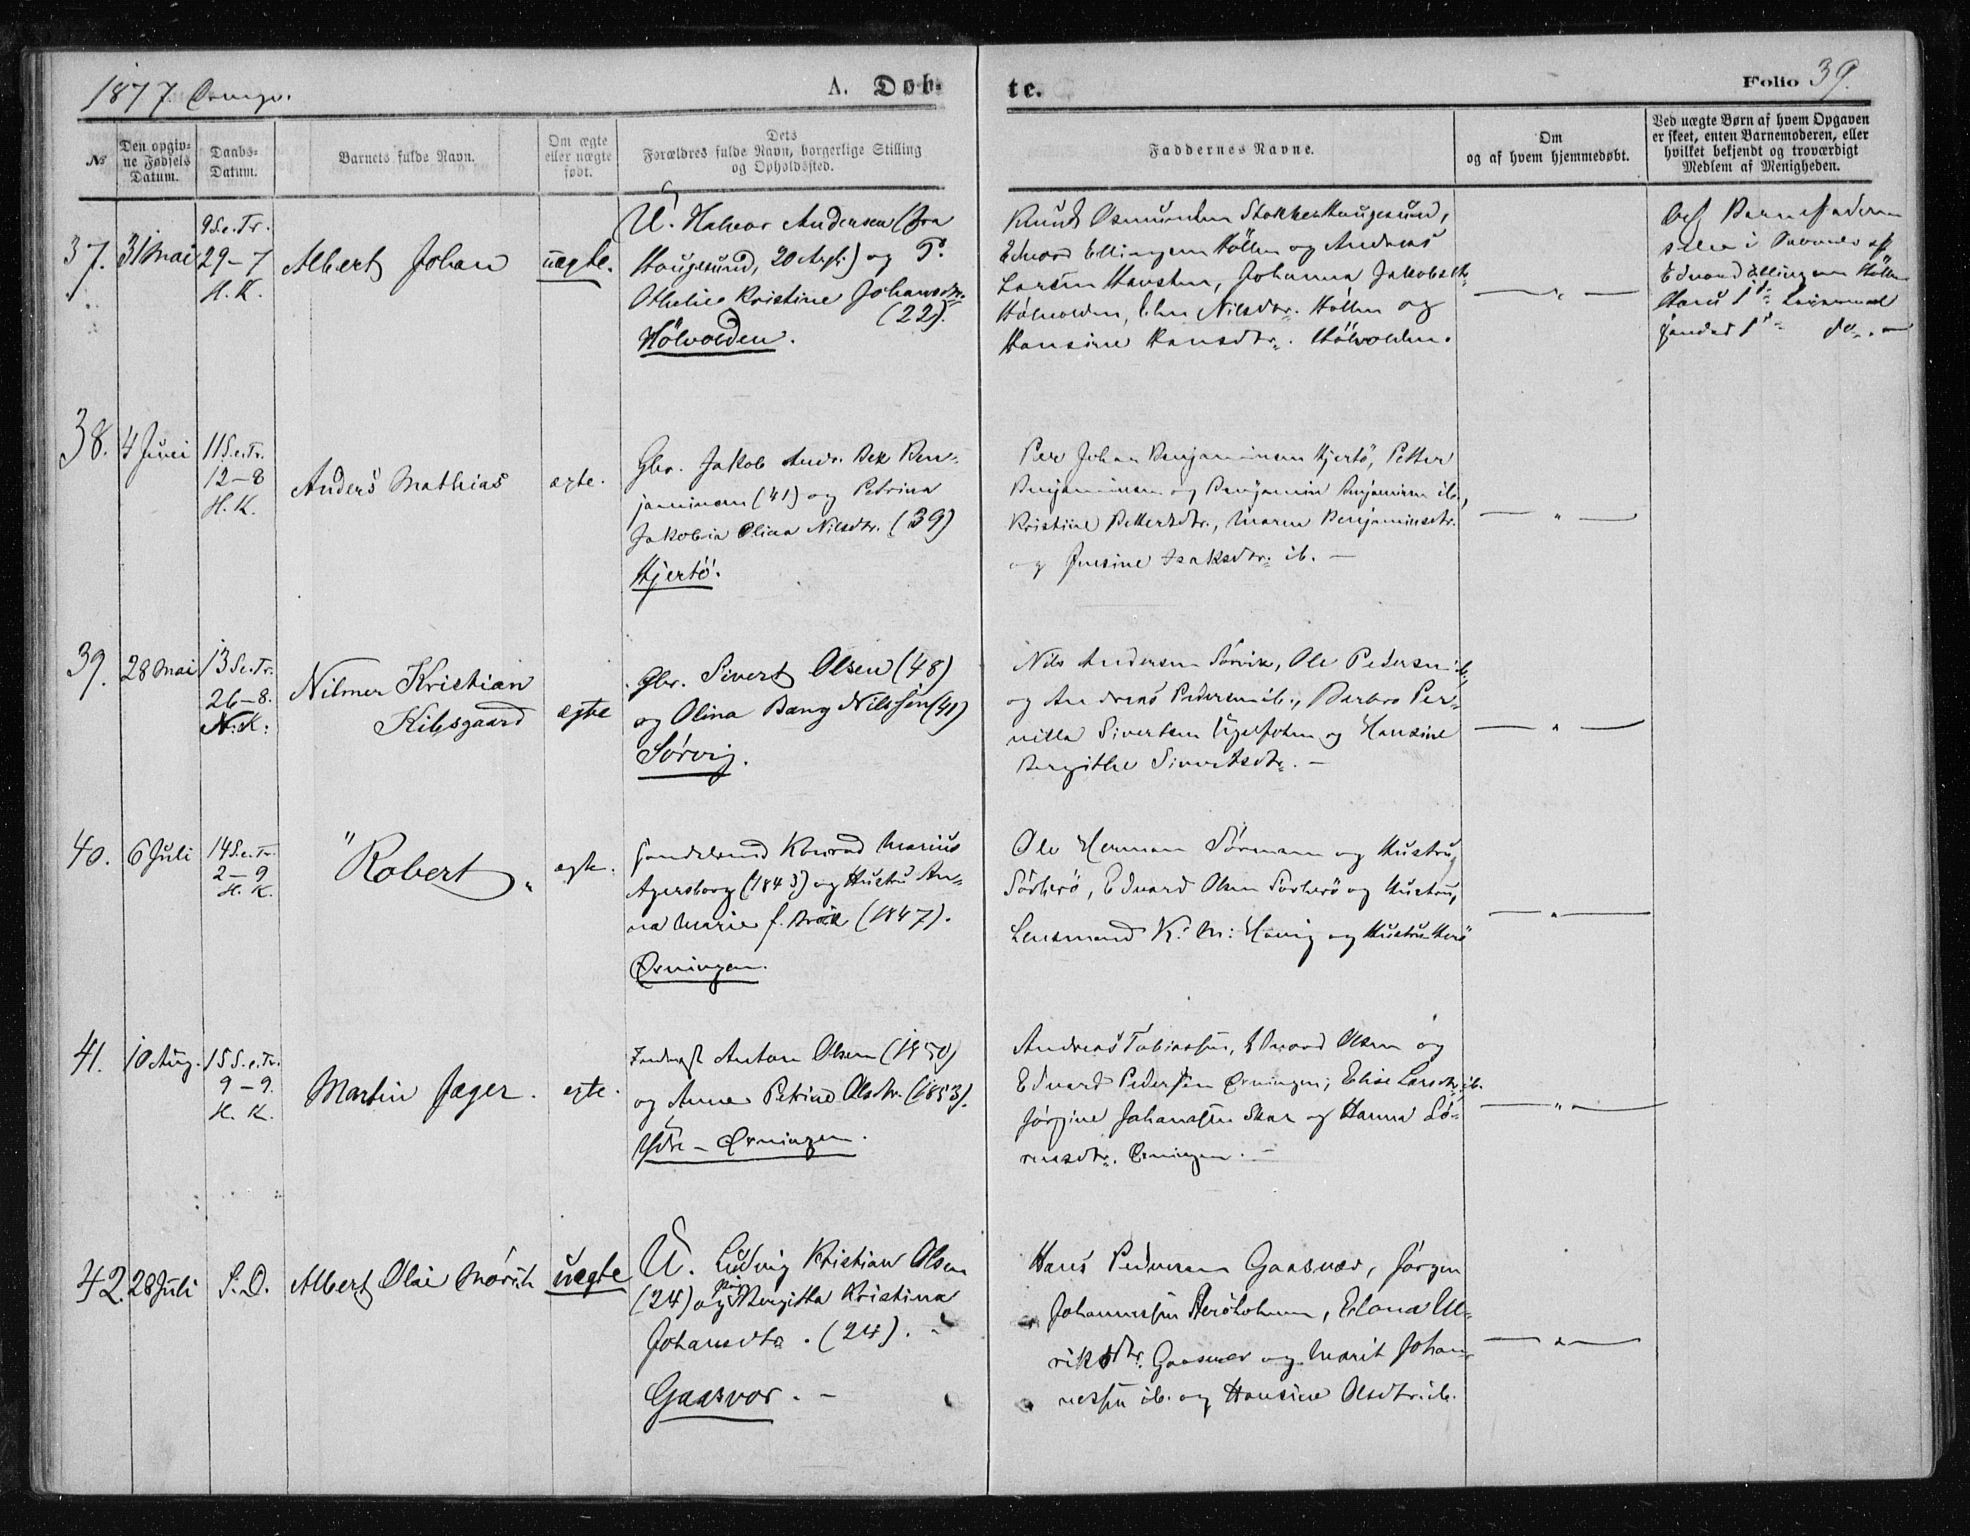 1877.
A. Døb-
te.
Folio 39.
No
Den opgiv-
ne Fødsels
Datum.
Daabs-
Datum.
Barnets fulde Navn.
Om ægte
eller uægte
født.
Dets
Forældres fulde Navn, borgerlige Stilling
og Opholdssted.
Faddernes Navne.
Om
og af hvem hjemmedøbt.
Ved uægte Børn af hvem Opgaven
er skeet, enten Barnemoderen, eller
hvilket bekjendt og troværdigt
Medlem af Menigheden.
37.
31 Mai
9 S. e. Tr.
29-7
H. K.
Albert Johan
uægte.
U. Halvor Andersen (fra
Haugesund, 20 Aar) og P.
Othelie Kristine Johansdtr.
(22).
Hölvolden.
Knud Osmundsen Stokke Haugesund,
Edvard Ellingsen Höllen og Andreas
Larsen Havsten, Johanna Jakobsdtr.
Hölvolden, Elen Nilsdtr. Höllen og
Hansine Hansdtr. Hölvolden.
— " —
Barnefaderen
selv i
Edvard Ellingsen Höllen
Hans 1ste Leiermaal
hendes 1ste do. —
38.
4 Juni
11 S. e. Tr.
12-8
H. K.
Anders Mathias
ægte.
Gbr. Jakob Andr. Bek Ben-
jaminsen (41) og Petrina
Jakobia Olina Nilsdtr. (39)
Hjertö.
Per Johan Benjaminsen Hjertö, Petter
Benjaminsen og Benjamin Benjaminsen ib.,
Kristine Pettersdtr., Maren Benjaminsdtr.
og Jensine Isaksdtr. ib. —
— " —
39.
28 Mai
13 S. e. Tr.
26-8.
N. K.
Nilmer Kristian
Kilsgaard
ægte
Gbr. Sivert Olsen (48)
og Olina Bang Nilssen (41)
Sørvig.
Nils Andersen Sörvik, Ole Pedersen ib.,
og Andreas Pedersen ib., Barbro Per-
nilla Sivertsen og Hansine
Bergithe Sivertsdtr. —
— " —
40.
6 Juli
14 S. e. Tr.
2-9
H. K.
" Robert "
ægte.
Handelsmd Konrad Marius
Agersborg (1843) og Hustru An-
na Marie f. (1847).
Øxningen.
Ole Herman Sörmann og Hustru
Sörherö, Edvard Olsen Sörherö og Hustru,
Lensmand K. M. Havig og Hustru Herö
— " —
41.
10 Aug.
15 S. e. Tr.
9-9.
H. K.
Martin Jæger.
ægte.
Anton Olsen (1850)
og Anne Petrine Olsdtr. (1853).
Ydre-Øxningen.
Andreas Tobiassen, Edvard Olsen og
Edvard Pedersen Øxningen, Elise Larsdtr. ib.
Jørgine Johanssen Skar og Hanna Sö-
rensdtr. Øxningen. —
— " —
42.
28 Juli
S. D.
Albert Olai Mørch
uægte
U. Ludvig Kristian Olsen
(24) og Pige Bergitta Kristina
Johansdtr. (24).
Gaasvær. —
Hans Pedersen Gaasvær, Jørgen
Johannessen Heröholmen, Ul-
riksdtr. Gaasvær og Marit Johan-
nessen ib. og Hansine Olsdtr. ib.
— " —